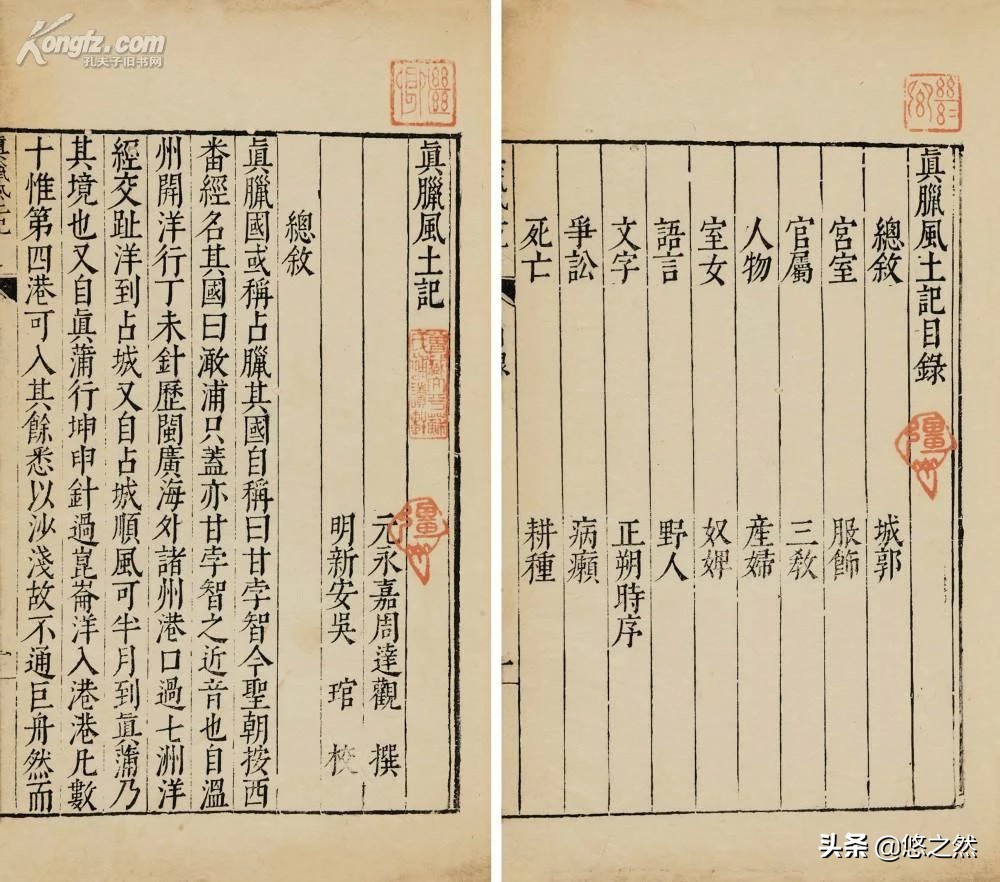 眞臘風土記目錄
總敘 城郭
宮室 服飾
官屬 三敎
人物 產婦
室女 奴婢
語言 野人
文字 正朔時序
爭訟 病癩
死亡 耕種
眞臘風土記
元永嘉周達觀 撰
明新安吳 琯 校
總敘
眞臘國或稱占臘其國自稱曰甘孛智今聖朝按西
番經名其國曰澉浦只蓋亦甘孛智之近音也自溫
州開洋行丁未針歷閩廣海外諸州港口過七洲洋
經交趾洋到占城又自占城順風可半月到眞蒲乃
其境也又自眞蒲行坤申針過崑崙洋入港港凡數
十惟第四港可入其餘悉以沙淺故不通巨舟然而
Kongfz.com
孔夫子旧书网
头条 @悠之然